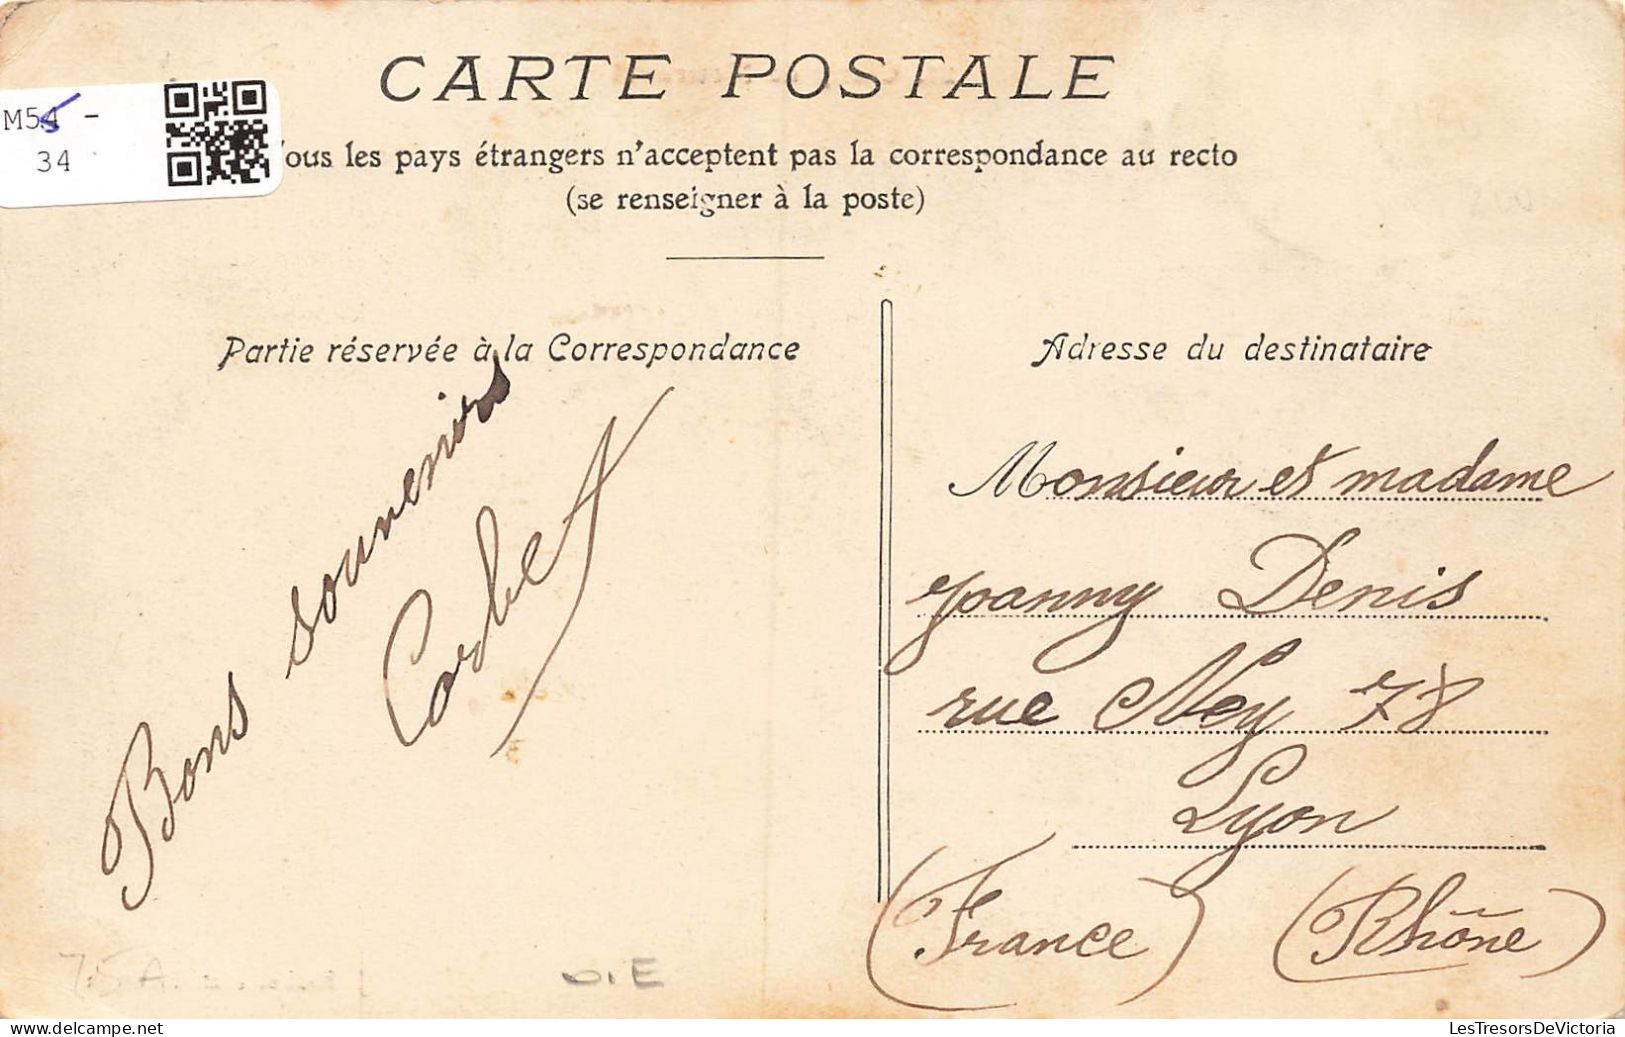 CARTE POSTALE
M54 -
34
ous les pays étrangers n'acceptent pas la correspondance au recto
(se renseigner à la poste)
Partie réservée à la Correspondance
Bons souvenirs
Corbet
Adresse du destinataire
Monsieur et madame
Joanny Denis
rue Ney 78
Lyon
(France) (Rhône)
LesTresorsDeVictoria
www.delcampe.net